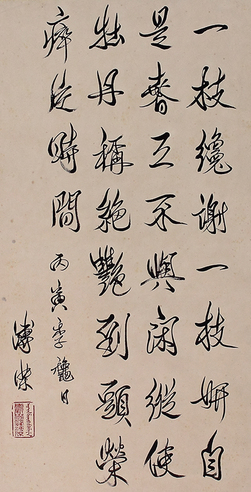 一枝纔謝一枝妍自
是春工不與閑縱使
牡丹稱絕艷到頭榮
瘁片時間
丙寅季龝日
溥傑